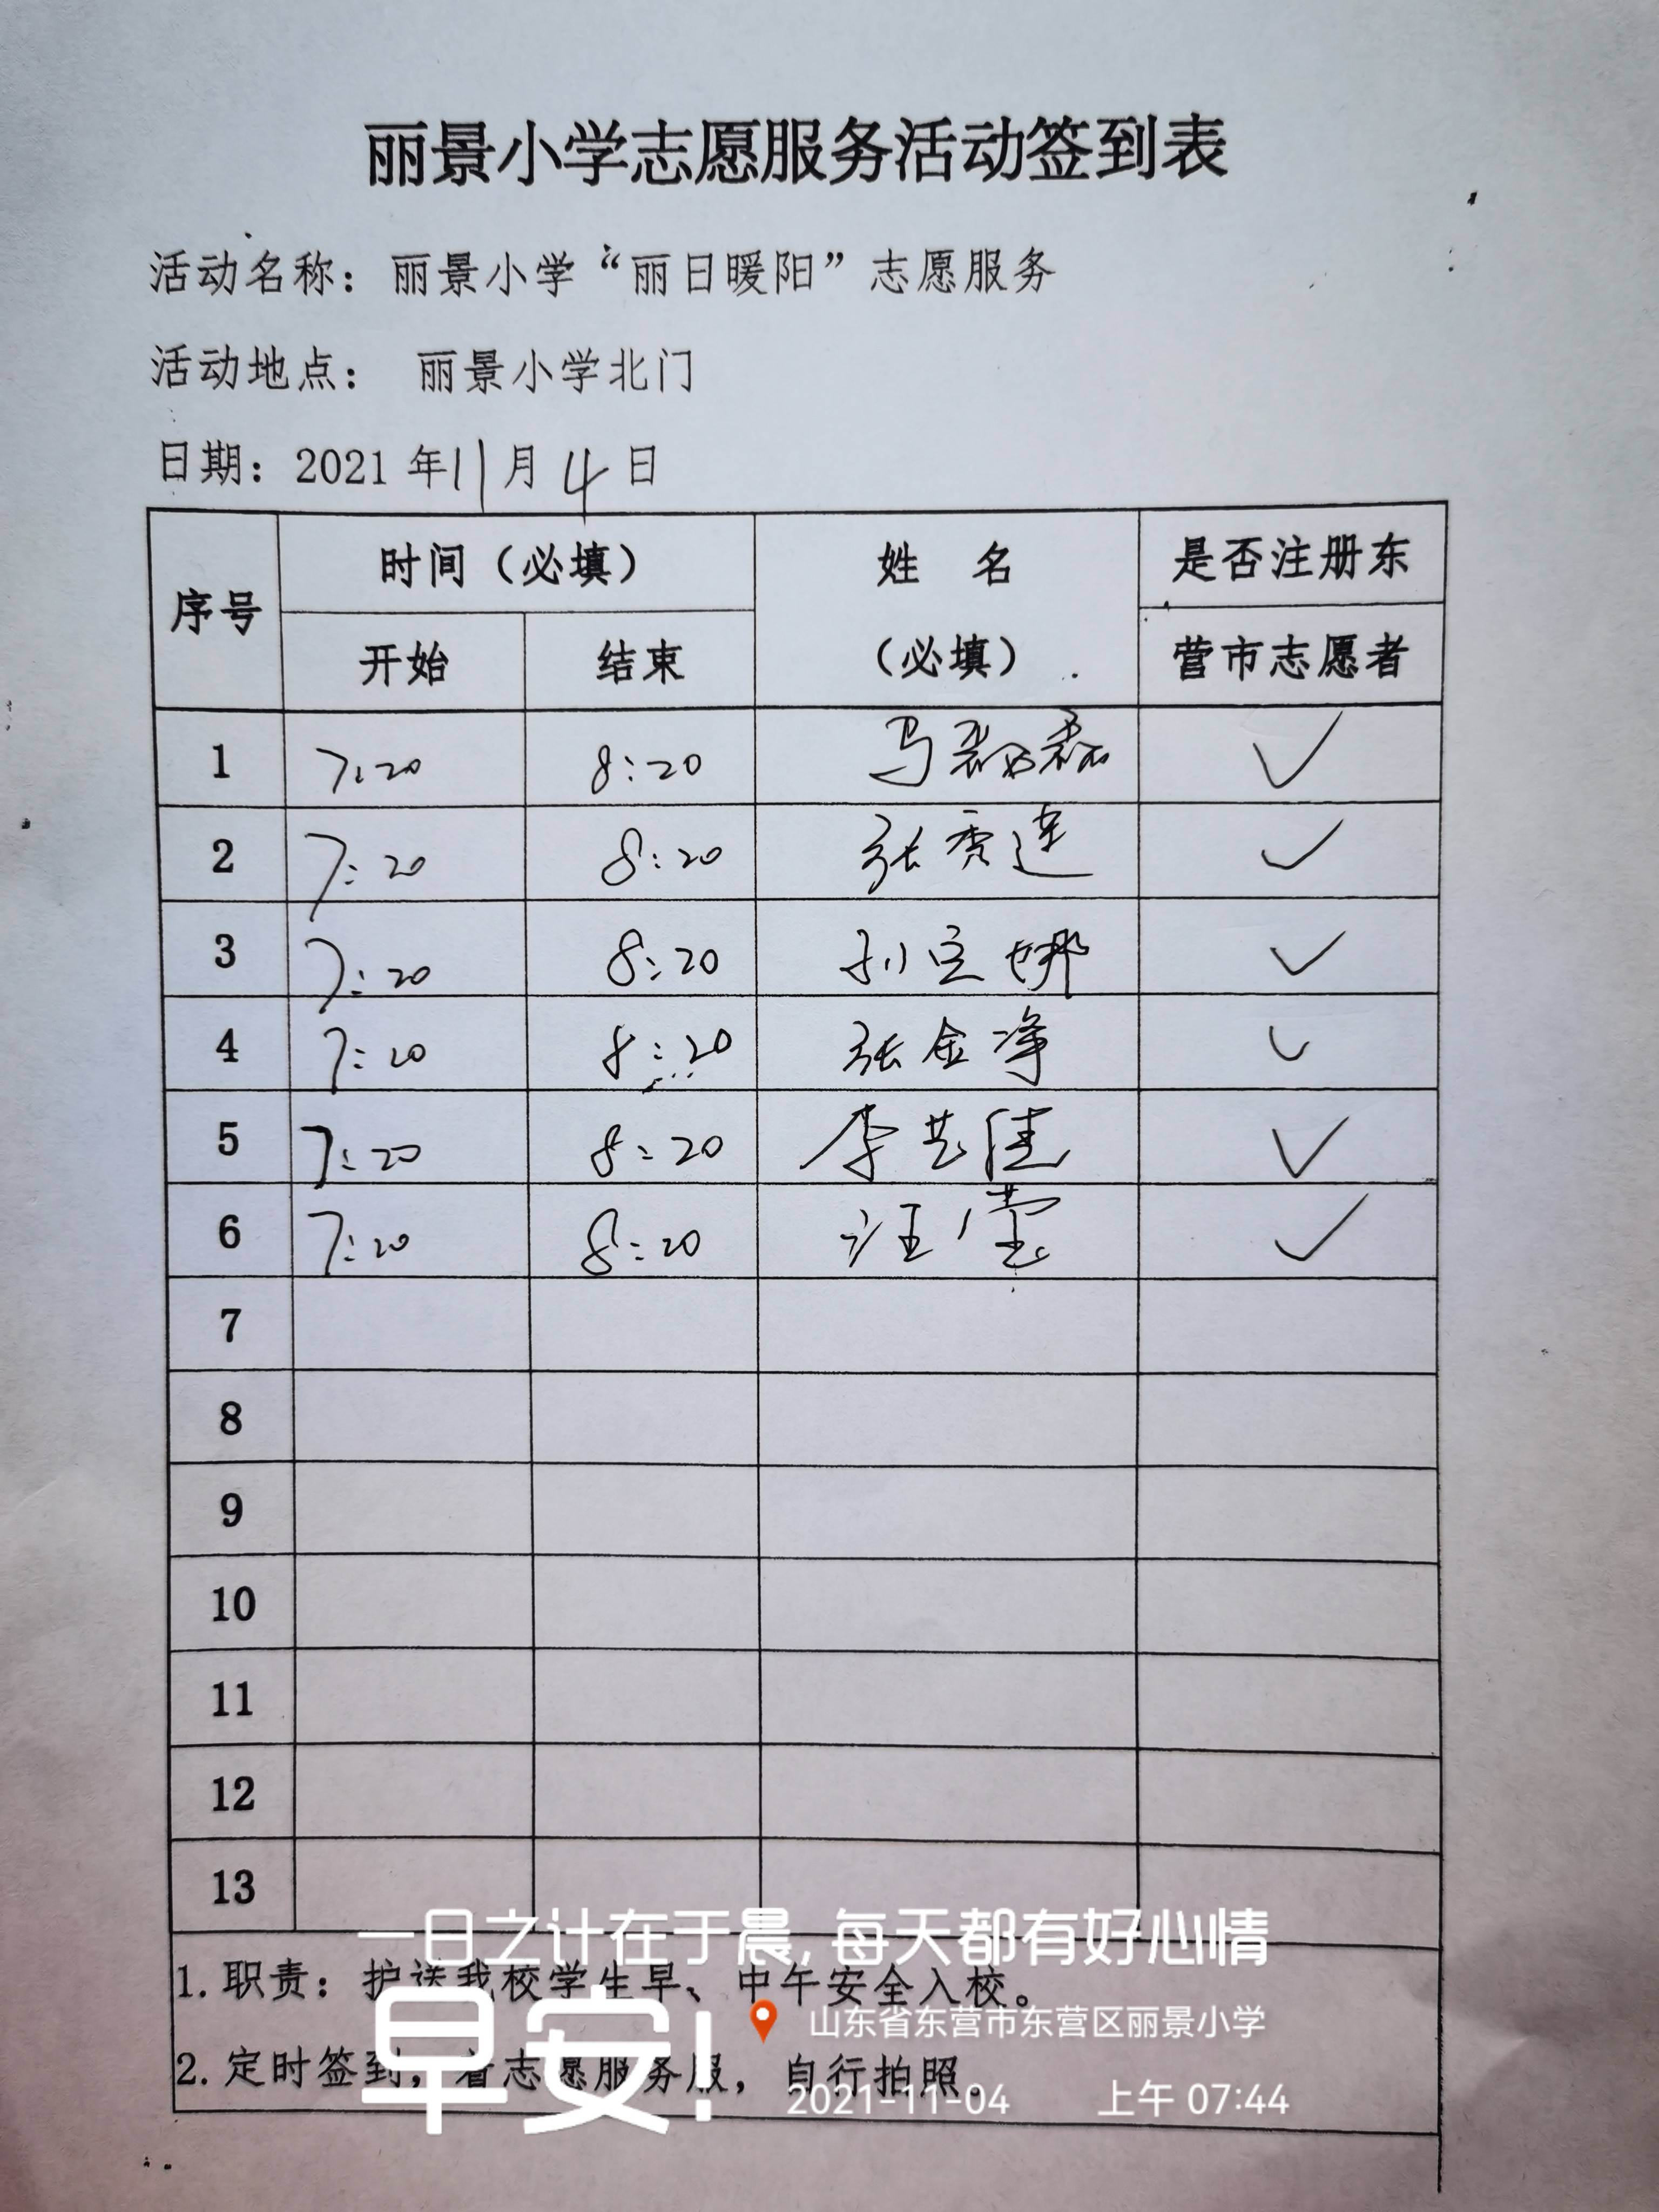 丽景小学志愿服务活动签到表
活动名称：丽景小学“丽日暖阳”志愿服务
活动地点： 丽景小学北门
日期：2021年11月4日
序号 时间（必填） 姓 名 是否注册东
开始 结束 （必填） 营市志愿者
1 7:20 8:20 马 ✓
2 7:20 8:20 张秀莲 ✓
3 7:20 8:20 孙立娜 ✓
4 7:20 8:20 张金净 ✓
5 7:20 8:20 李艺佳 ✓
6 7:20 8:20 汪莹 ✓
7
8
9
10
11
12
13
一日之计在于晨，每天都有好心情
1.职责：护送我校学生早、中午安全入校。
早安！
山东省东营市东营区丽景小学
2.定时签到，着志愿服务服，自行拍照。
2021-11-04 上午 07:44